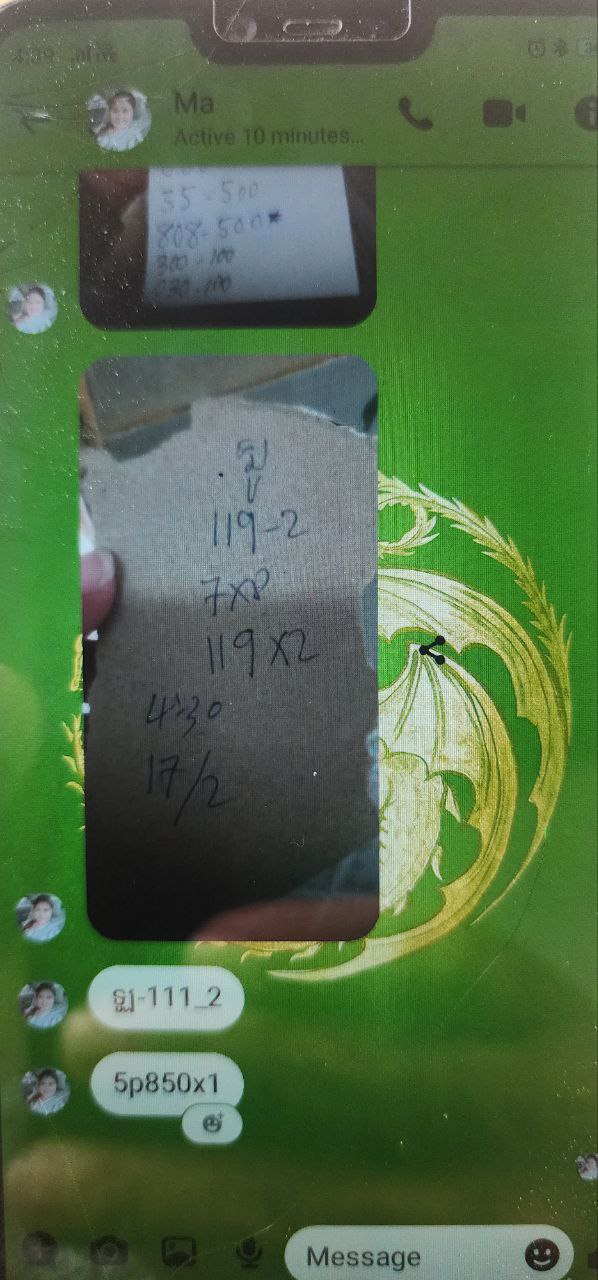 Ma
Active 10 minutes...
55-500
808-500*
300-100
030-100
ឡូ
119-2
7XP
119X2
4:30
17/2
ឡ-111_2
5p850x1
Message